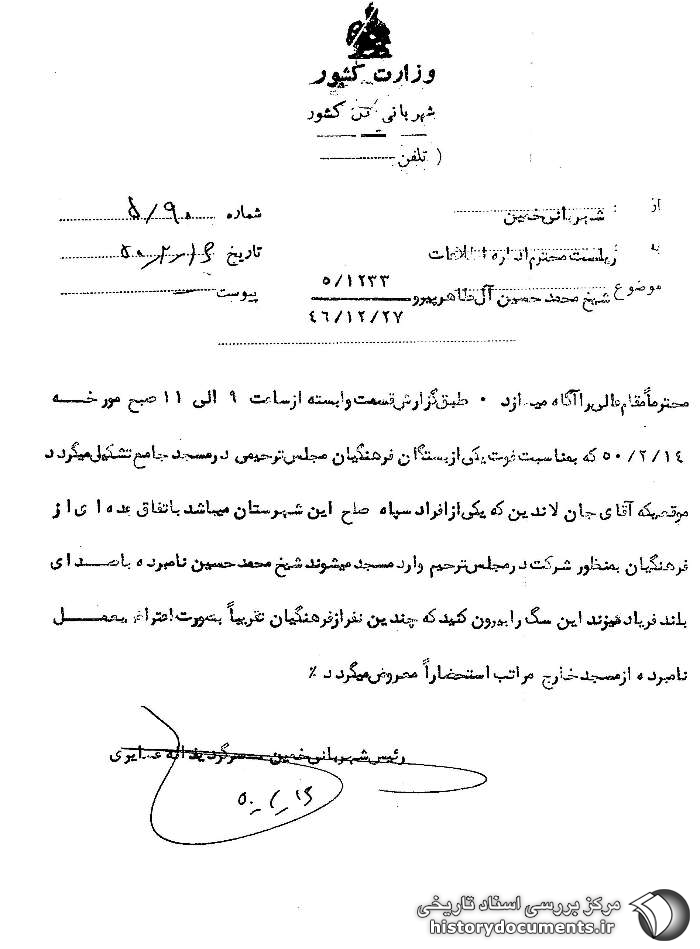 وزارت کشور
شهربانی کل کشور
( تلفن
از : شهربانی خمین
شماره ۵/۹۰
به : ریاست محترم اداره اطلاعات
تاریخ ۵۰/۲/۱۶
موضوع شیخ محمد حسین آل طاهر پیرو ۵/۱۲۳۳
۴۶/۱۲/۲۷
پیوست
محترماً مقام عالی را آگاه میسازد . طبق گزارش قسمت وابسته از ساعت ۹ الی ۱۱ صبح مورخه
۵۰/۲/۱۴ که بمناسبت فوت یکی از بستگان فرهنگیان مجلس ترحیمی در مسجد جامع تشکیل میگردد
موقعیکه آقای جان لاندین که یکی از افراد سپاه صلح این شهرستان میباشد باتفاق عده ای از
فرهنگیان بمنظور شرکت در مجلس ترحیم وارد مسجد میشوند شیخ محمد حسین نامبرده با صدای
بلند فریاد میزند این سگ را بیرون کنید که چندین نفر از فرهنگیان تقریباً بصورت اعتراض بعمل
نامبرده از مسجد خارج مراتب استحضاراً معروض میگردد ٪
رئیس شهربانی خمین سرگرد
مرکز بررسی اسناد تاریخی
historydocuments.ir